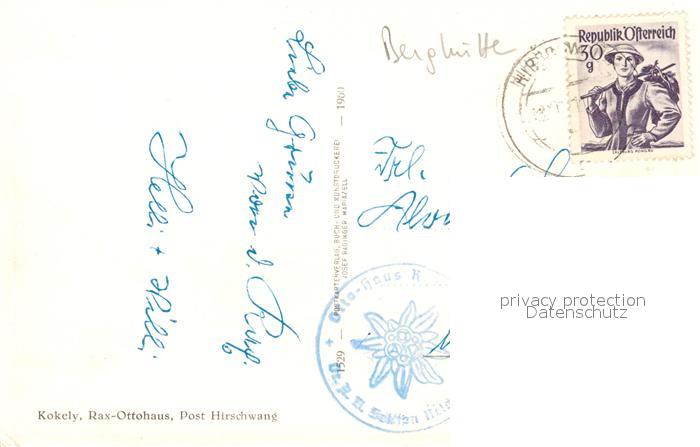 Berghütte
Republik Österreich
30
g
Liebe Grüsse
von d. Rax.
Helli + Willi
Frl.
1529 — POSTKARTENVERLAG, BUCH- UND KUNSTDRUCKEREI — 1960
JOSEF RADINGER, MARIAZELL
Otto-Haus
Sektion Reich
privacy protection
Datenschutz
Kokely, Rax-Ottohaus, Post Hirschwang